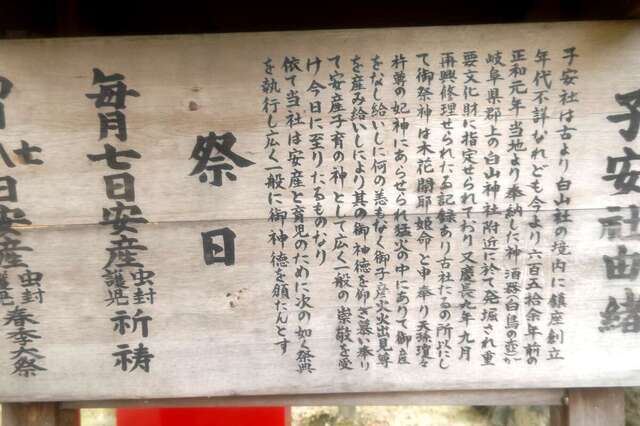 子安社由緒
子安社は古より白山社の境内に鎮座創立
年代不詳なれども今より六百五拾余年前の
正和元年当地より奉納した神酒器(白鳥の壺)が
岐阜県郡上の白山神社附近に於て発掘され重
要文化財に指定せられており又慶長七年九月
再興修理せられたる記録あり古社たるの所以にし
て御祭神は木花開耶姫命と申奉り天孫瓊々
杵尊の妃神にあらせられ猛火の中にありて御産
をなし給いしに何の恙もなく御子彦火火出見尊
を産み給いしにより其の御神徳を仰ぎ慕い奉り
て安産子育の神として広く一般の崇敬を受
け今日に至りたるものなり
依て当社は安産と育児のために次の如く祭典
を執行し広く一般に御神徳を頒たんとす
祭日
毎月七日安産護児虫封祈祷
七八日安産護児虫封春季大祭